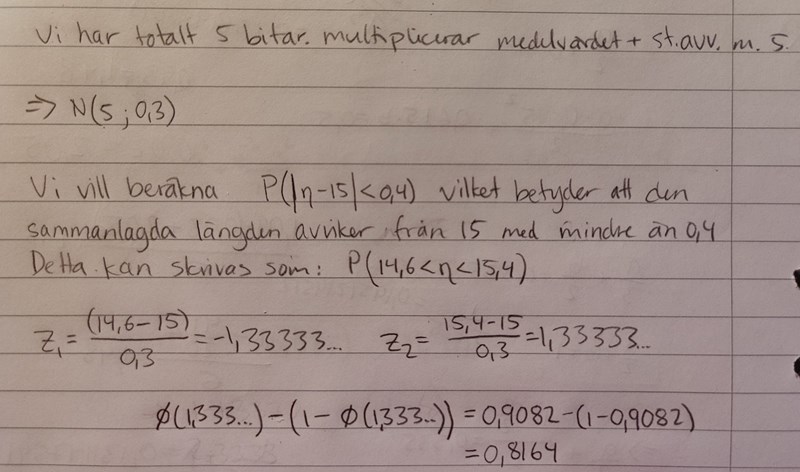 Vi har totalt 5 bitar. multiplicerar medelvärdet + st.avv. m. 5.
=> N(5 ; 0,3)
Vi vill beräkna P(|η-15|<0,4) vilket betyder att den
sammanlagda längden avviker från 15 med mindre än 0,4
Detta kan skrivas som: P(14,6<η<15,4)
Z₁ = (14,6-15)/0,3 = -1,33333... Z₂ = 15,4-15/0,3 = 1,33333...
φ(1,333...) - (1 - φ(1,333..)) = 0,9082 - (1-0,9082)
= 0,8164